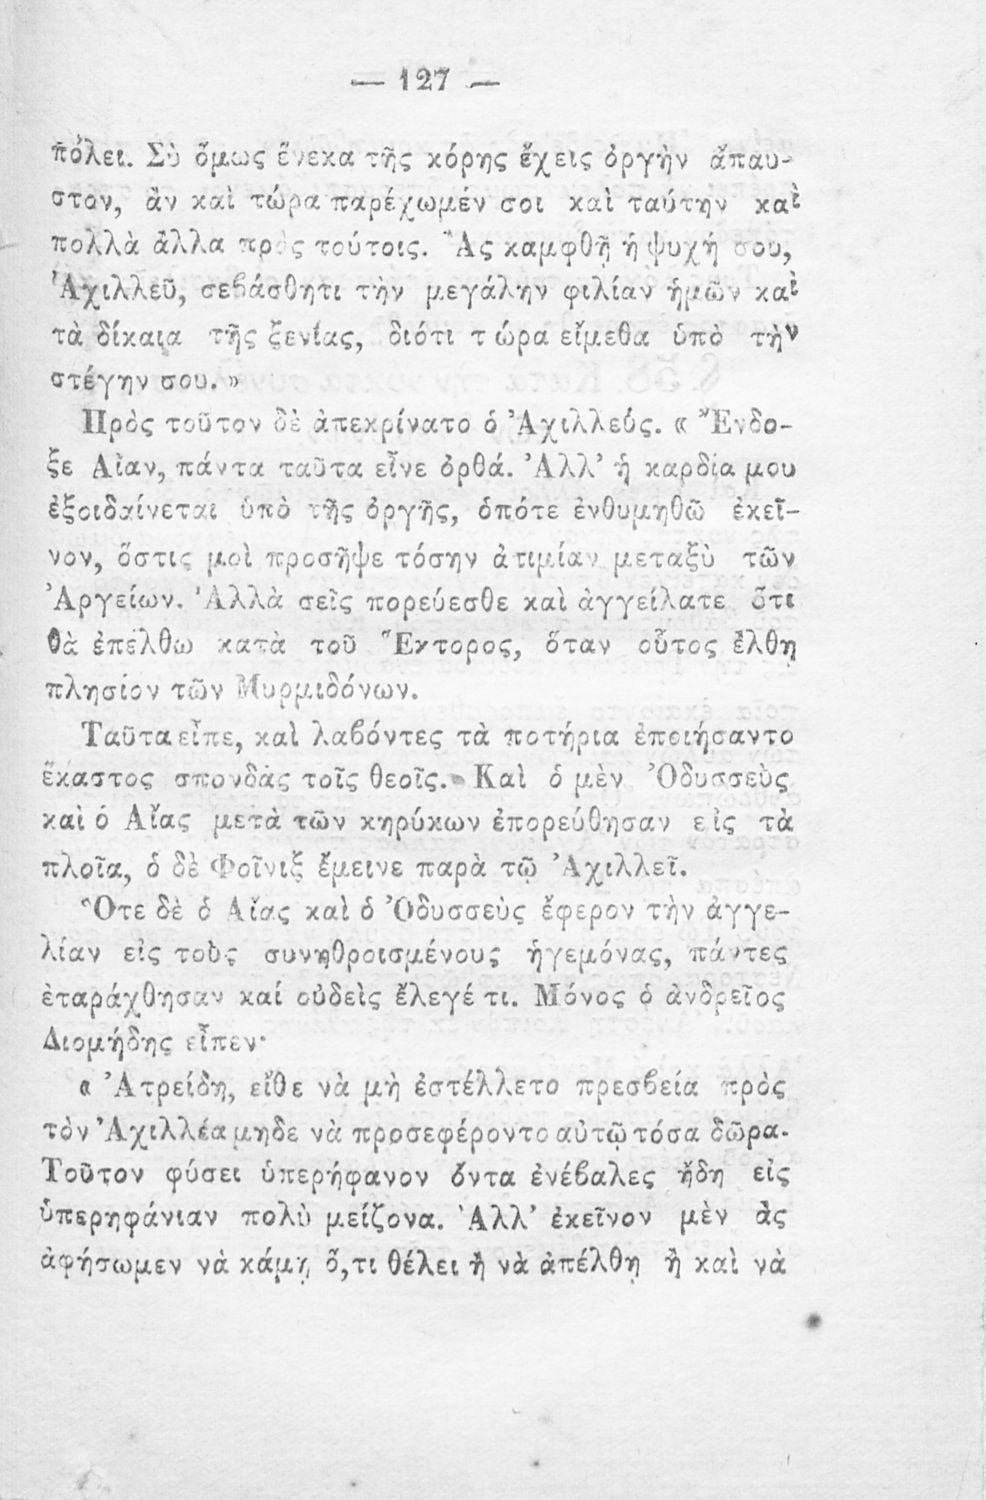 — 127 —
πόλει. Σὺ ὅμως ἕνεκα τῆς κόρης ἔχεις ὀργὴν ἄπαυ-
στον, ἂν καὶ τώρα παρέχωμέν σοι καὶ ταύτην καὶ
πολλὰ ἄλλα πρὸς τούτοις. Ἂς καμφθῇ ἡ ψυχή σου,
Ἀχιλλεῦ, σεβάσθητι τὴν μεγάλην φιλίαν ἡμῶν καὶ
τὰ δίκαια τῆς ξενίας, διότι τώρα εἴμεθα ὑπὸ τὴν
στέγην σου.»
Πρὸς τοῦτον δὲ ἀπεκρίνατο ὁ Ἀχιλλεύς. « Ἔνδο-
ξε Αἶαν, πάντα ταῦτα εἶνε ὀρθά. Ἀλλ’ ἡ καρδία μου
ἐξοιδαίνεται ὑπὸ τῆς ὀργῆς, ὁπότε ἐνθυμηθῶ ἐκεῖ-
νον, ὅστις μοὶ προσῆψε τόσην ἀτιμίαν μεταξὺ τῶν
Ἀργείων. Ἀλλὰ σεῖς πορεύεσθε καὶ ἀγγείλατε ὅτι
θὰ ἐπέλθω κατὰ τοῦ Ἕκτορος, ὅταν οὗτος ἔλθῃ
πλησίον τῶν Μυρμιδόνων.
Ταῦτα εἶπε, καὶ λαβόντες τὰ ποτήρια ἐποιήσαντο
ἕκαστος σπονδὰς τοῖς θεοῖς. Καὶ ὁ μὲν Ὀδυσσεὺς
καὶ ὁ Αἴας μετὰ τῶν κηρύκων ἐπορεύθησαν εἰς τὰ
πλοῖα, ὁ δὲ Φοῖνιξ ἔμεινε παρὰ τῷ Ἀχιλλεῖ.
Ὅτε δὲ ὁ Αἴας καὶ ὁ Ὀδυσσεὺς ἔφερον τὴν ἀγγε-
λίαν εἰς τοὺς συνηθροισμένους ἡγεμόνας, πάντες
ἐταράχθησαν καί οὐδεὶς ἔλεγέ τι. Μόνος ὁ ἀνδρεῖος
Διομήδης εἶπεν·
« Ἀτρείδη, εἴθε νὰ μὴ ἐστέλλετο πρεσβεία πρὸς
τὸν Ἀχιλλέα μηδε νὰ προσεφέροντο αὐτῷ τόσα δῶρα.
Τοῦτον φύσει ὑπερήφανον ὄντα ἐνέβαλες ἤδη εἰς
ὑπερηφάνιαν πολὺ μείζονα. Ἀλλ’ ἐκεῖνον μὲν ἂς
ἀφήσωμεν νὰ κάμῃ ὅ,τι θέλει ἢ νὰ ἀπέλθῃ ἢ καὶ νὰ